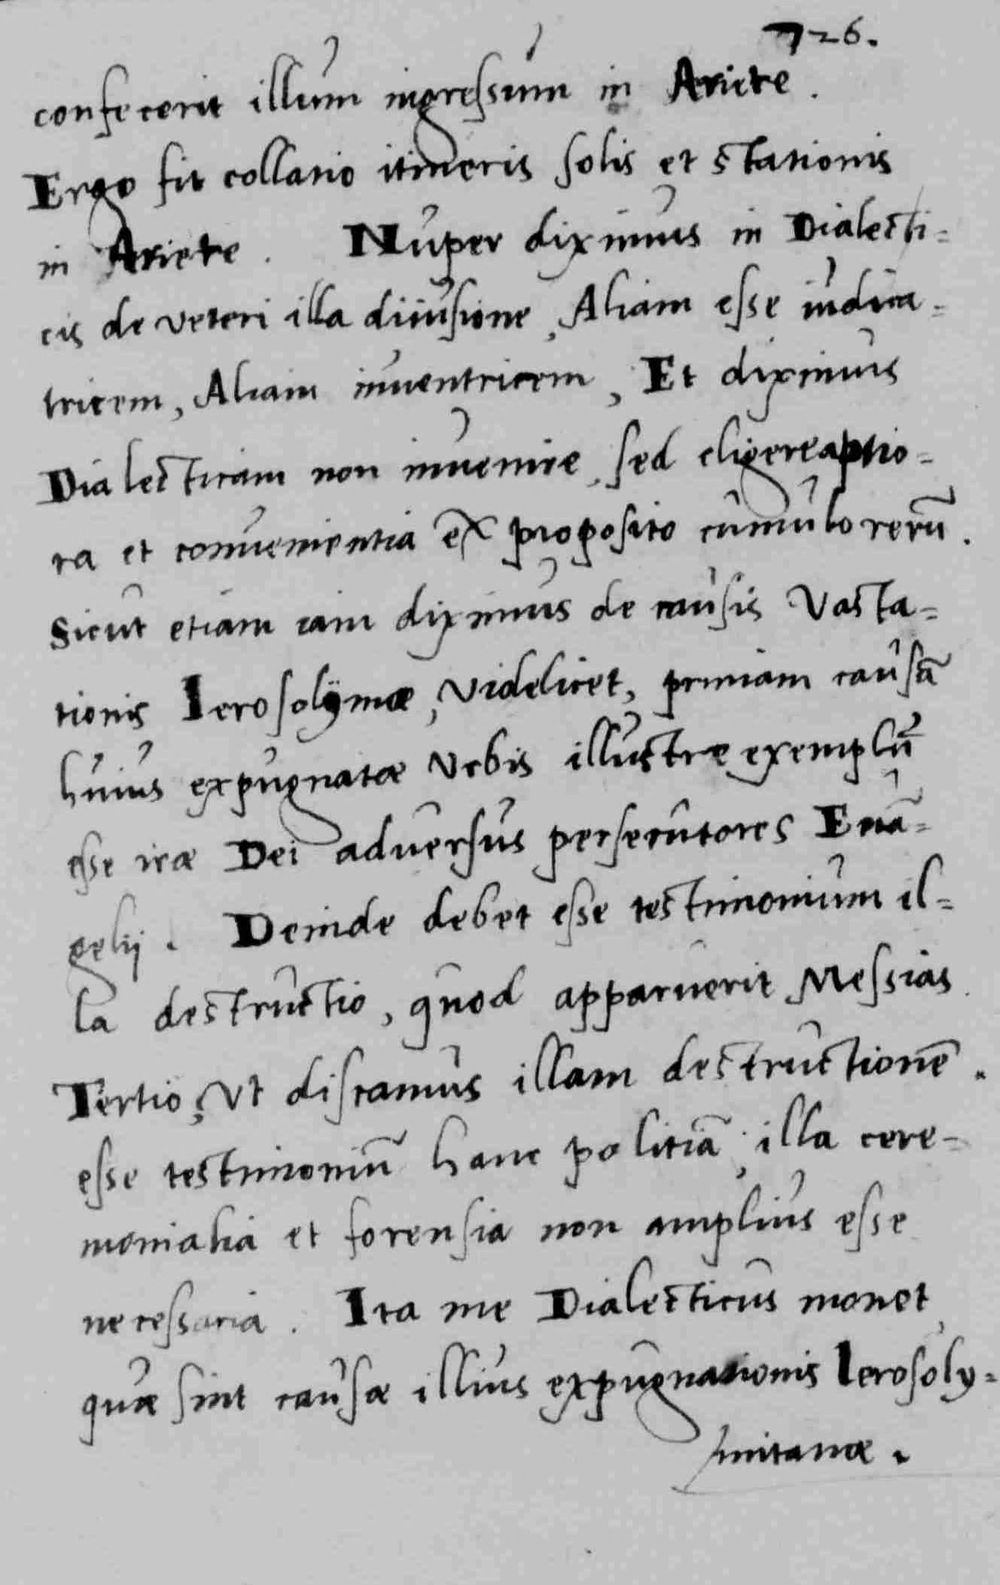 726.
confecerit illum ingressum in Ariete.
Ergo fit collatio itineris solis et stationis
in Ariete. Nuper diximus in Dialecti=
cis de veteri illa diuisione, Aliam esse iudica=
tricem, Aliam inuentricem, Et diximus
Dialecticam non inuenire, sed eligere aptio=
ra et conuenientia ex proposito cumulo rerū.
Sicut etiam iam diximus de causis Vasta=
tionis Ierosolÿmæ, videlicet, primam causā
huius expugnatæ Vrbis illustre exemplū
esse iræ Dei aduersus persecutores Euā=
gelij. Deinde debet esse testimonium il=
la destructio, quod apparuerit Messias.
Tertio, Vt discamus illam destructionē.
esse testimoniū hanc politiā, illa cere=
monialia et forensia non amplius esse
necessaria. Ita me Dialecticus monet,
quæ sint causæ illius expugnationis Ierosoly=
mitanæ.